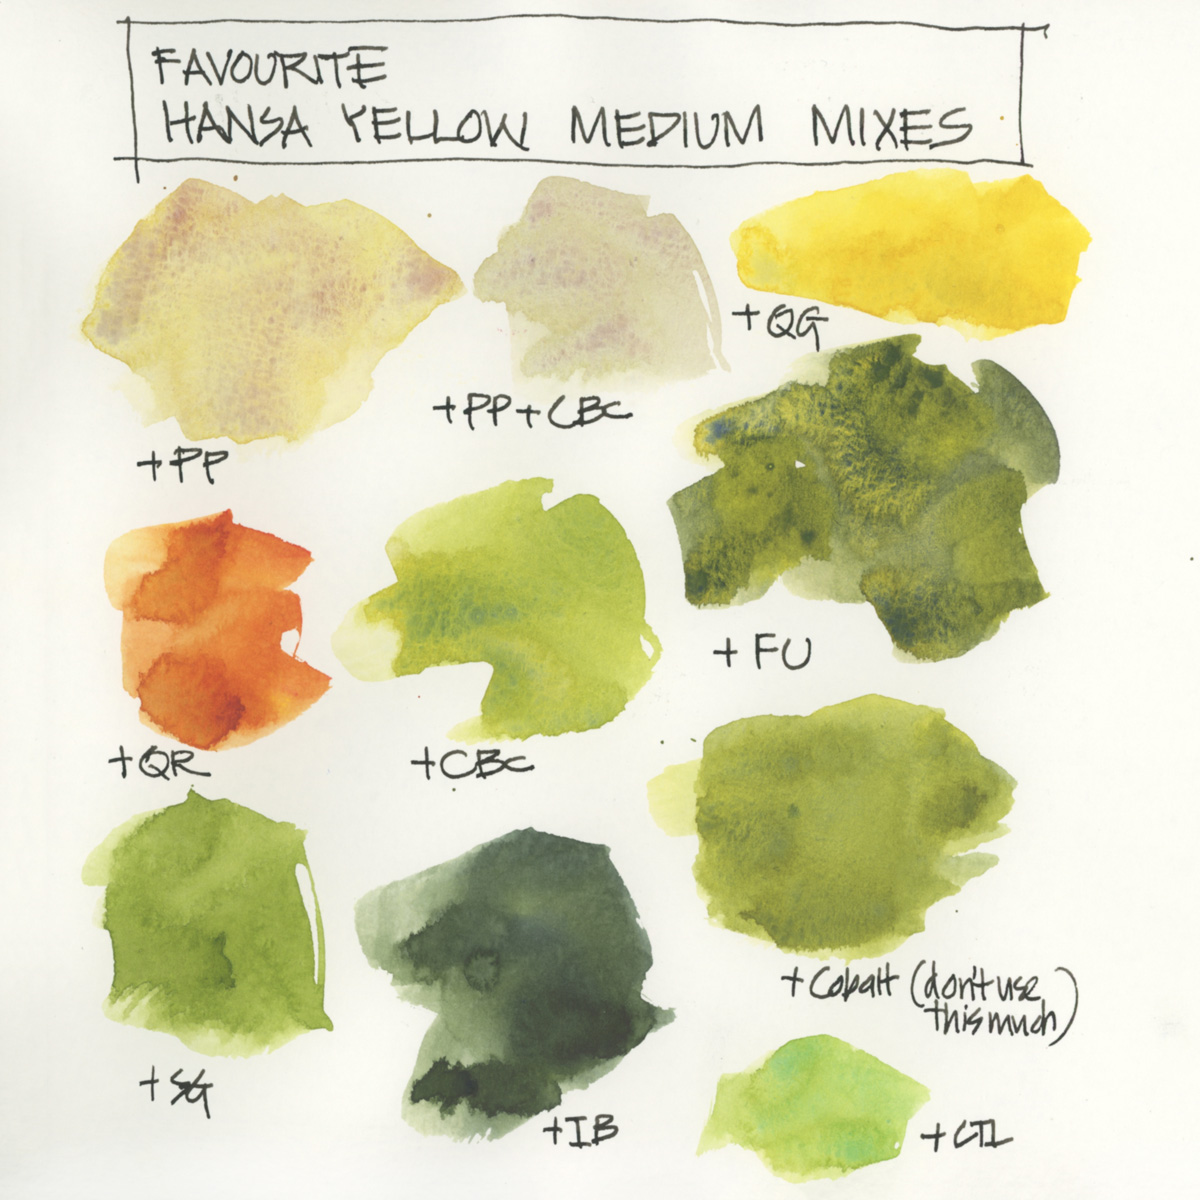 FAVOURITE
HANSA YELLOW MEDIUM MIXES
+PP
+PP+CBC
+QG
+FU
+QR
+CBC
+SG
+IB
+Cobalt (don't use
this much)
+CTL